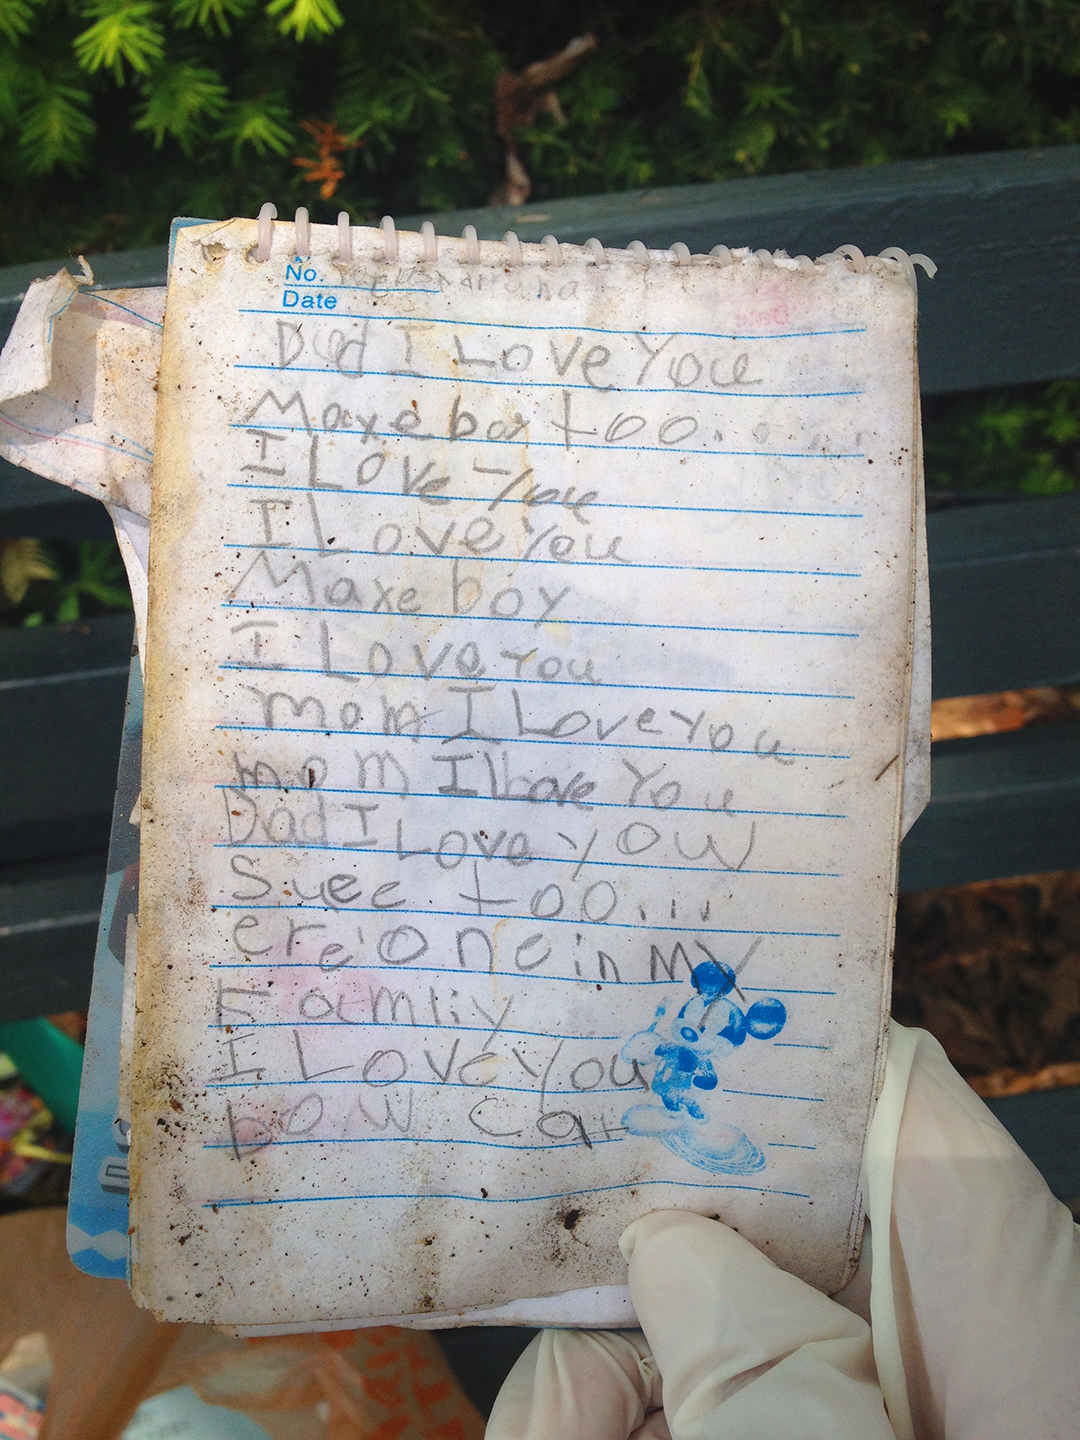 No.
Date
Dad I Love You
Maxe boy too....
I Love You
I Love You
Maxe boy
I Love You
Mom I Love You
mom I Love You
Dad I Love yoW
Suee too...
ere'one in MY
Famliy
I Love You
bow cat